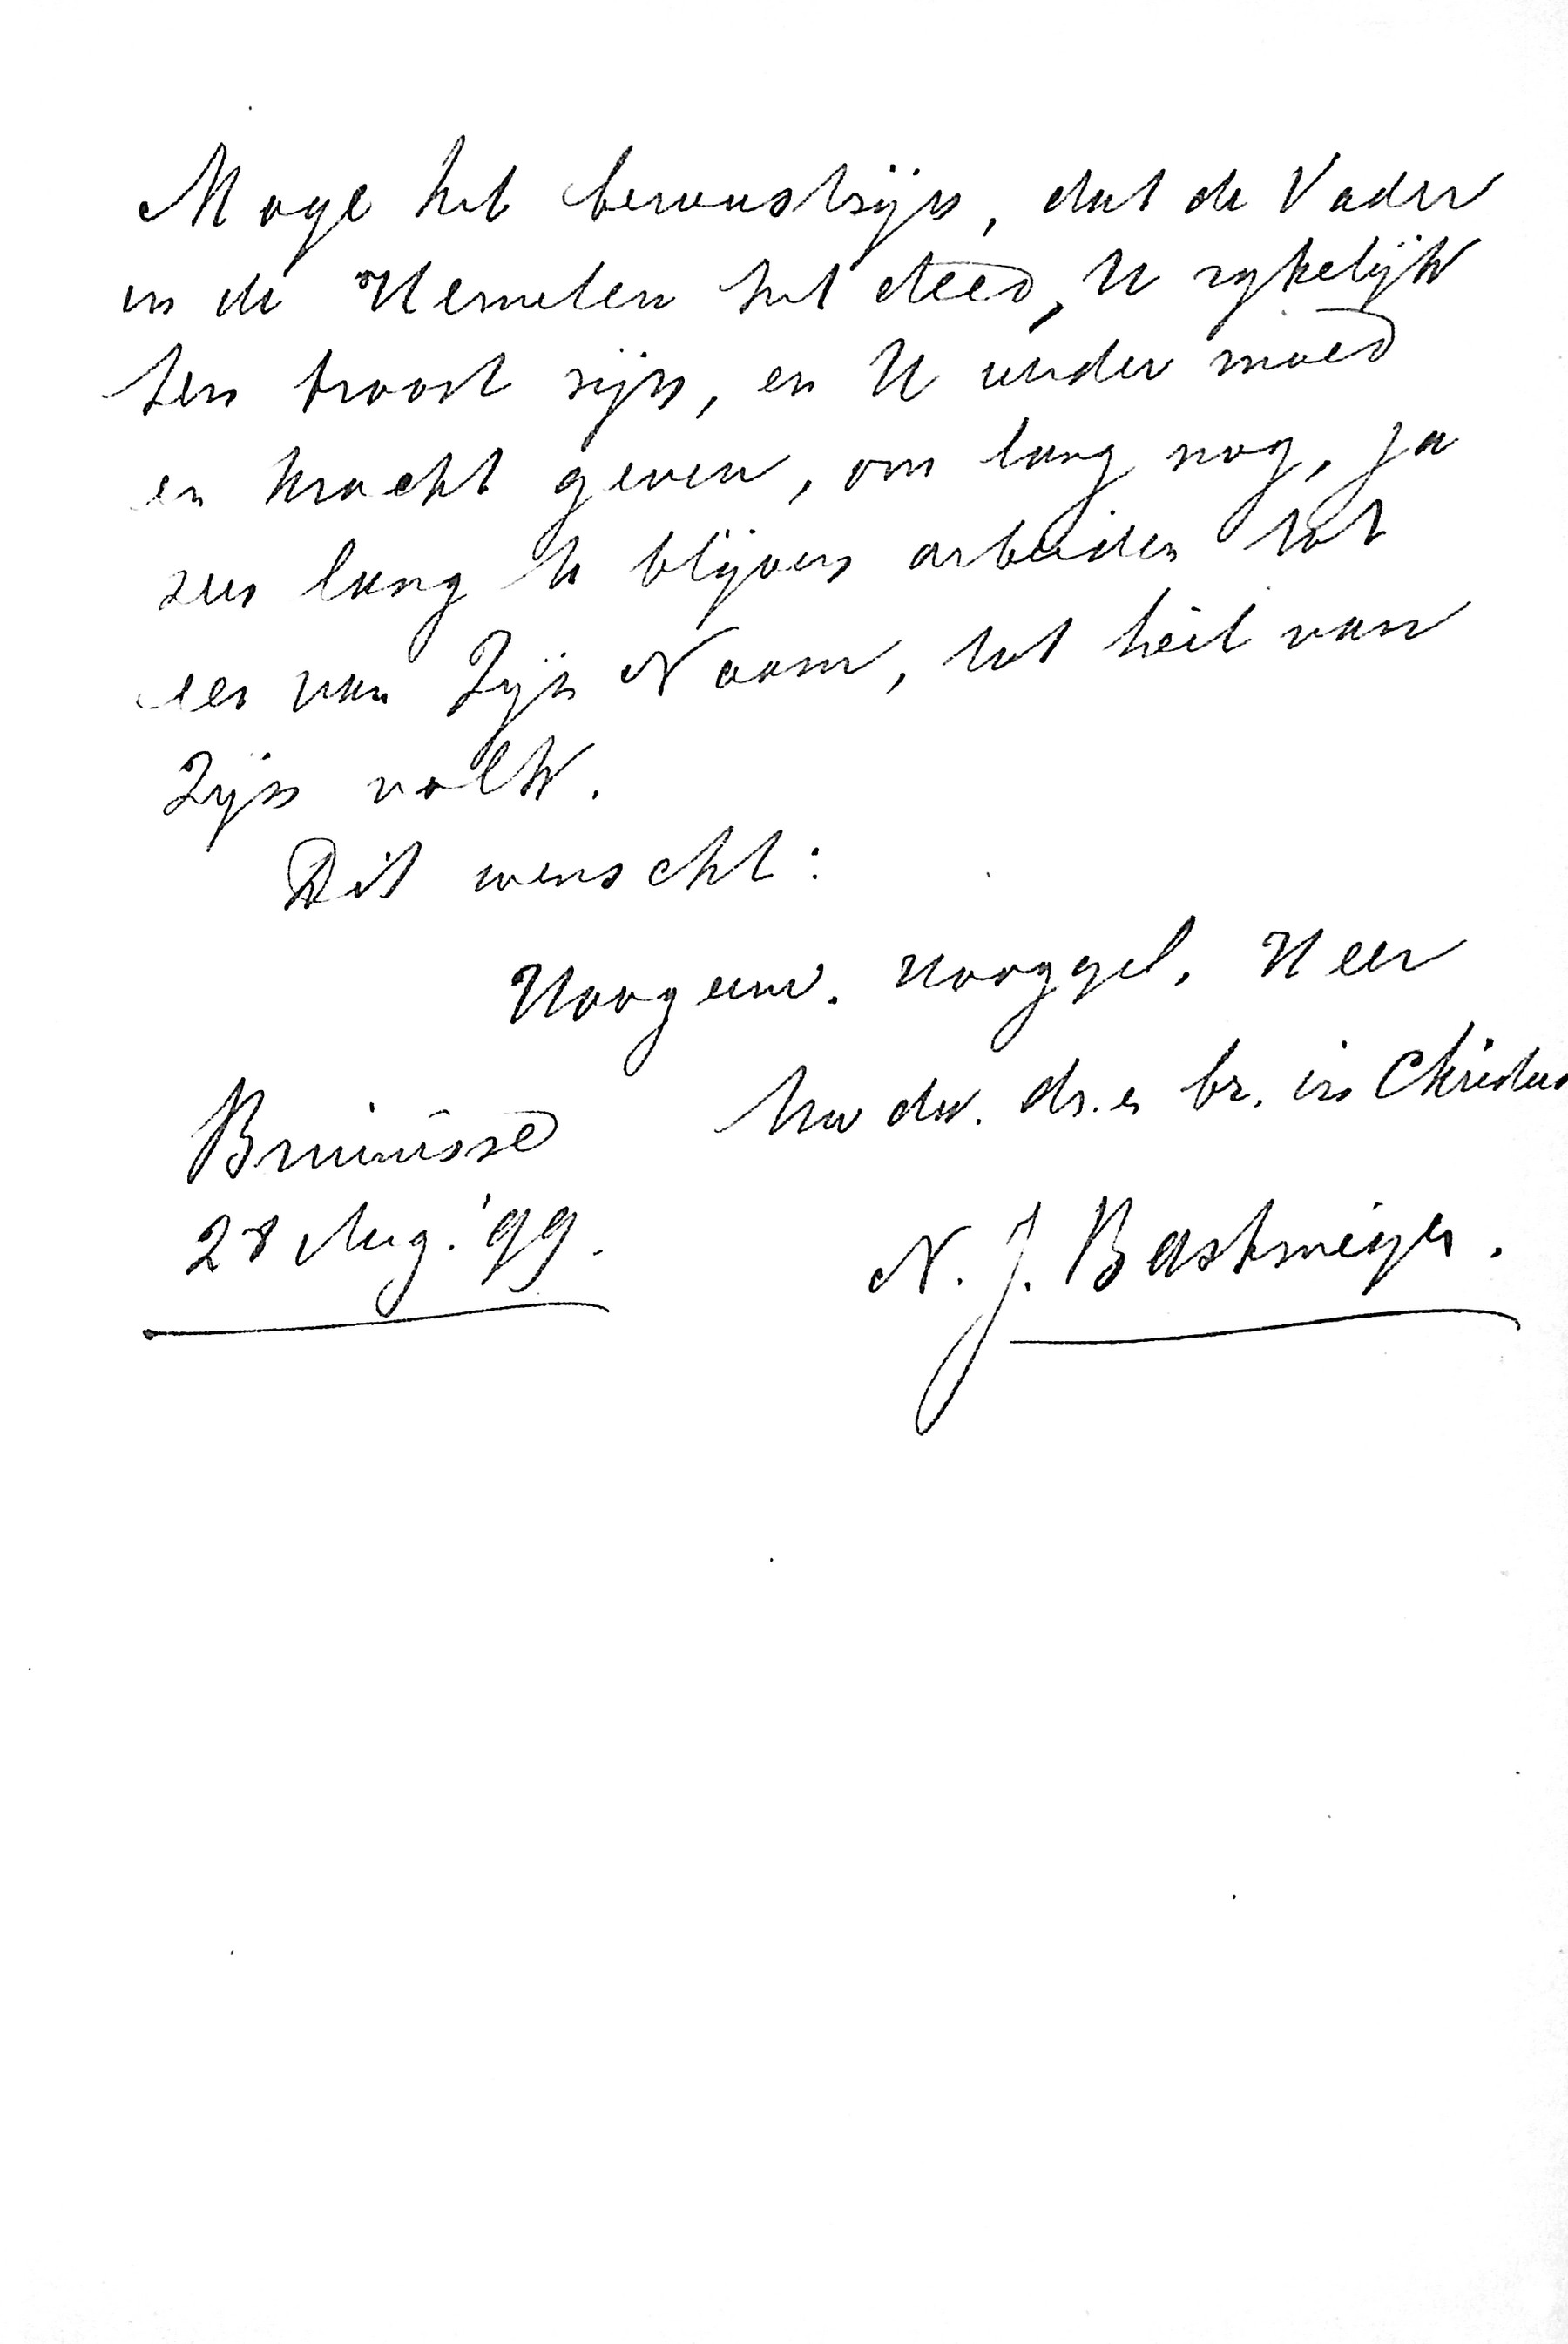 Moge het bewustzijn, dat de Vader
in de Hemelen het deed, U rijkelijk
ten troost zijn, en U verder moed
en kracht geven, om lang nog, ja
zeer lang te blijven arbeiden tot
eer van Zijn Naam, tot heil van
Zijn volk.
Dit wenscht:
Hoogeerw. Hooggel. Heer
Uw dw. dr. en br. in Christus
Bruinisse
28 Aug. '99.
N. J. Bastmeijer.